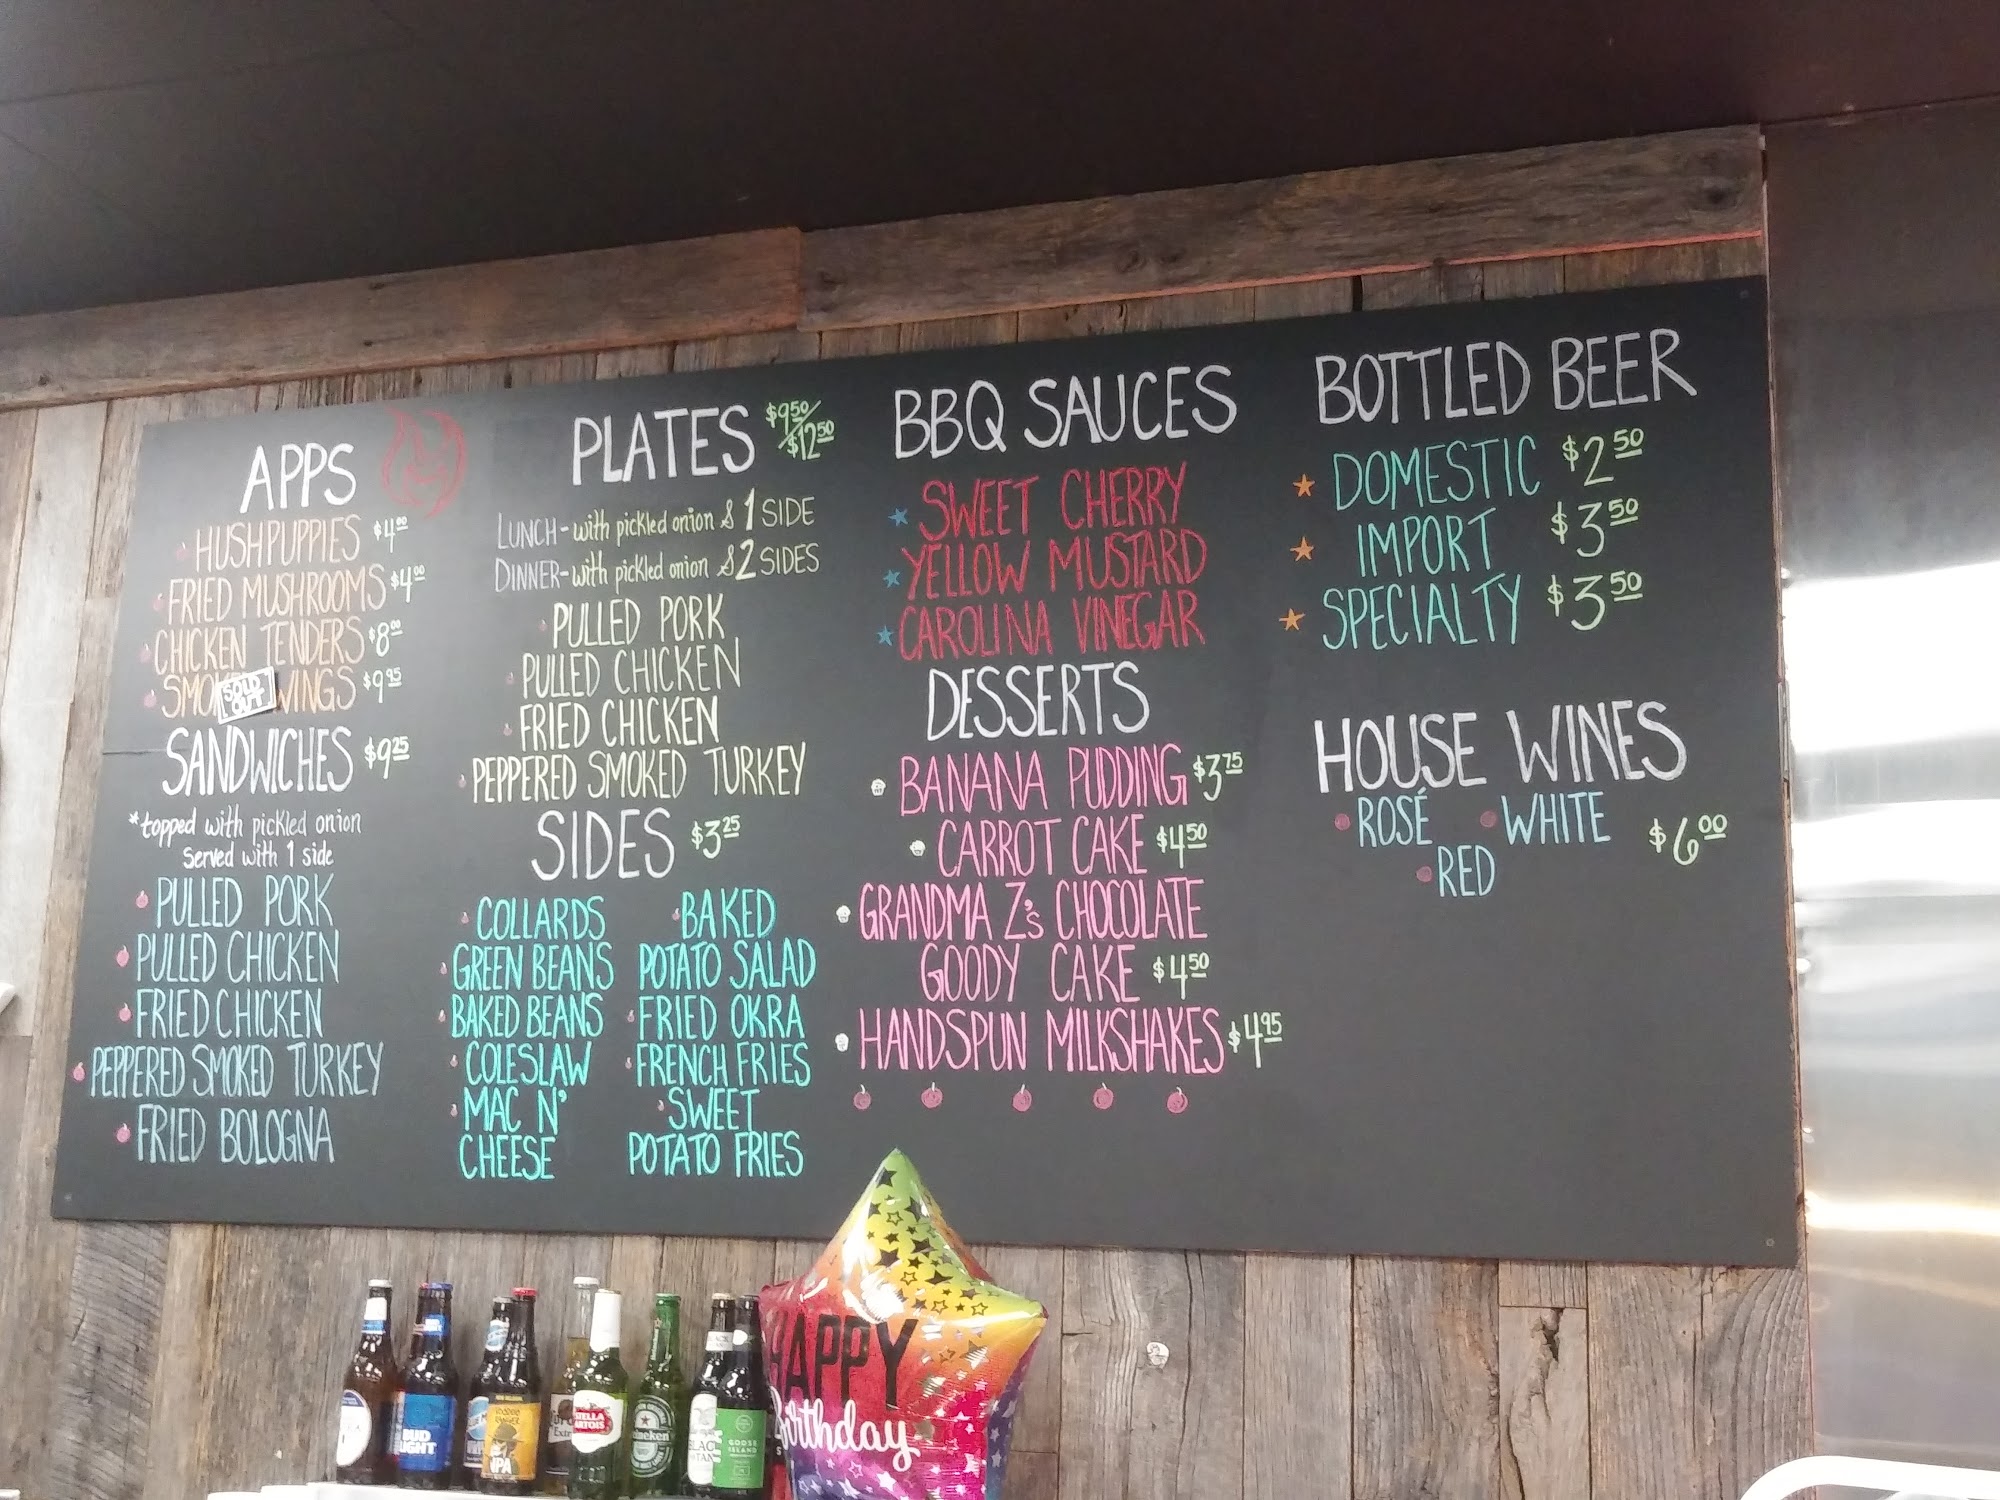 APPS
HUSHPUPPIES $4.00
FRIED MUSHROOMS $4.00
CHICKEN TENDERS $8.00
SMOK WINGS $9.95
SOLD
OUT
SANDWICHES $9.25
*topped with pickled onion
served with 1 side
PULLED PORK
PULLED CHICKEN
FRIED CHICKEN
PEPPERED SMOKED TURKEY
FRIED BOLOGNA
PLATES $9.50/$12.50
LUNCH-with pickled onion & 1 SIDE
DINNER-with pickled onion & 2 SIDES
PULLED PORK
PULLED CHICKEN
FRIED CHICKEN
PEPPERED SMOKED TURKEY
SIDES $3.25
COLLARDS
GREEN BEANS
BAKED BEANS
COLESLAW
MAC N'
CHEESE
BAKED
POTATO SALAD
FRIED OKRA
FRENCH FRIES
SWEET
POTATO FRIES
BBQ SAUCES
SWEET CHERRY
YELLOW MUSTARD
CAROLINA VINEGAR
DESSERTS
BANANA PUDDING $3.75
CARROT CAKE $4.50
GRANDMA Z's CHOCOLATE
GOODY CAKE $4.50
HANDSPUN MILKSHAKES $4.95
BOTTLED BEER
DOMESTIC $2.50
IMPORT $3.50
SPECIALTY $3.50
HOUSE WINES
ROSÉ WHITE $6.00
RED
BUD
LIGHT
VOODOO
RANGER
IPA
STELLA
ARTOIS
Heineken
GOOSE
ISLAND
HAPPY
Birthday